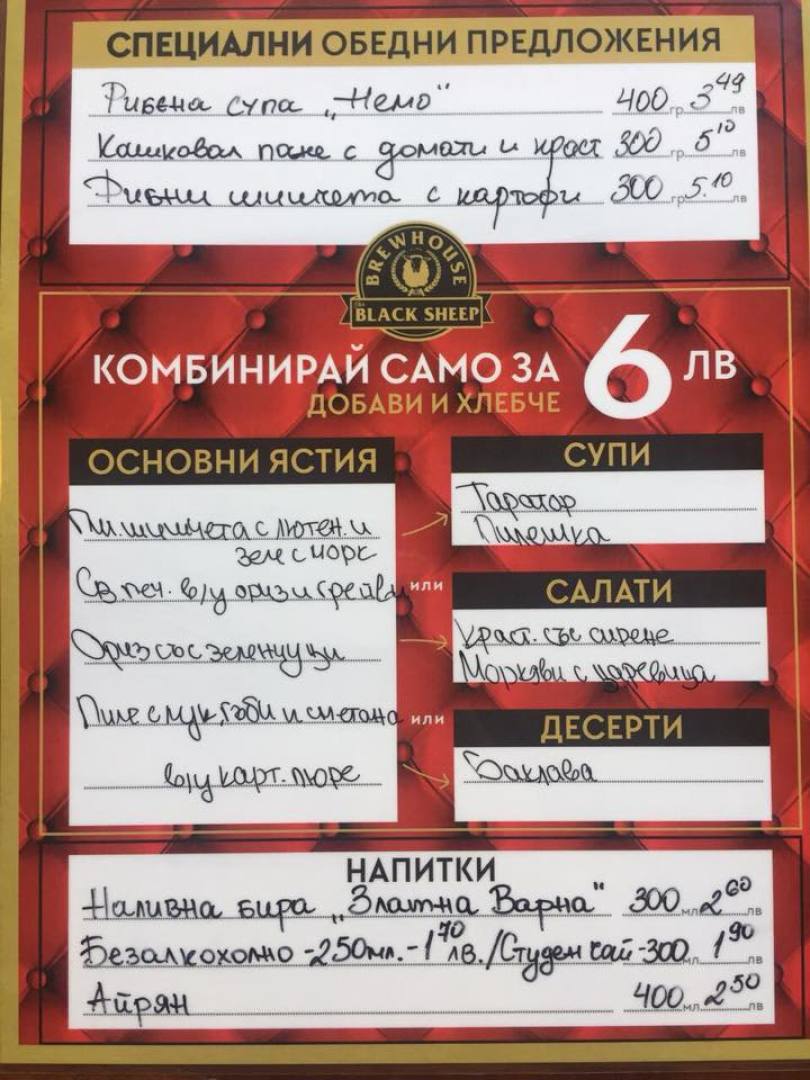 СПЕЦИАЛНИ ОБЕДНИ ПРЕДЛОЖЕНИЯ
Рибена супа „Немо" 400 гр 3 49 лв
Кашкавал пане с домати и краст 300 гр 5 10 лв
Рибни шишчета с картофи 300 гр 5.10 лв
BREWHOUSE
THE BLACK SHEEP
КОМБИНИРАЙ САМО ЗА 6 ЛВ
ДОБАВИ И ХЛЕБЧЕ
ОСНОВНИ ЯСТИЯ
Пил.шишчета с лютен. и
зеле с морк
Св.печ. в/у ориз и грейви
Ориз със зеленчуци
Пиле с лук, гъби и сметана
в/у карт. пюре
СУПИ
Таратор
Пилешка
или
САЛАТИ
Краст. със сирене
Моркови с царевица
или
ДЕСЕРТИ
Баклава
НАПИТКИ
Наливна бира „Златна Варна" 300 мл 2 60 лв
Безалкохолно -250мл. -1 70 лв. /Студен чай -300 мл 1 90 лв
Айрян 400 мл 2 50 лв